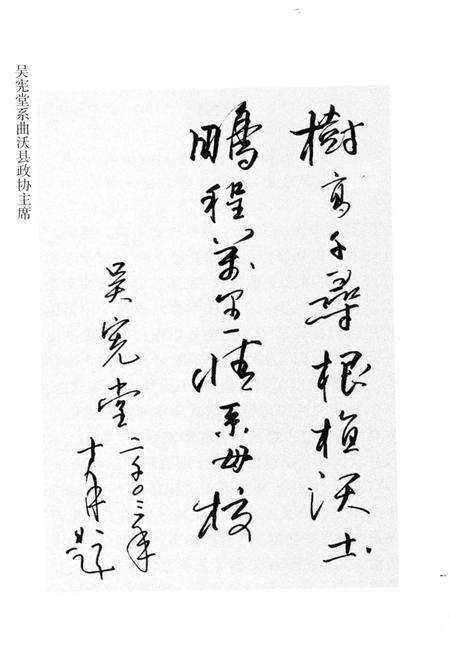 樹高千尋根植沃土
鵬程萬里情系母校
吴宪堂二千〇三年
十月题
吴宪堂系曲沃县政协主席